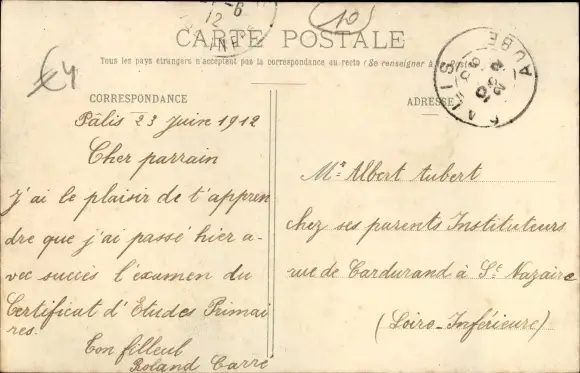 6
12
10
CARTE POSTALE
Tous les pays étrangers n'acceptent pas la correspondance au recto (Se renseigner à la Poste)
CORRESPONDANCE
Palis 23 Juin 1912
Cher parrain
j'ai le plaisir de t'appren
dre que j'ai passé hier a-
vec succès l'examen du
Certificat d'Etudes Primai
res.
Ton filleul
Roland Carré
ADRESSE
PALIS
AUBE
Mr Albert Aubert
chez ses parents Instituteurs
rue de Cardurand à St Nazaire
(Loire-Inférieure)